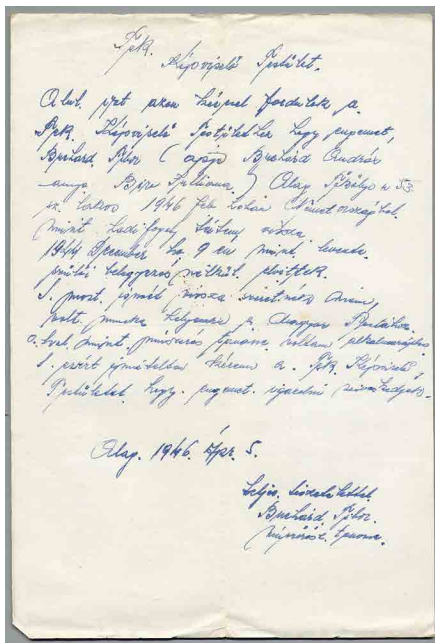 Tek.
Képviselő Testület.
Alul. azon kéréssel fordulok a
Tek. Képviselő Testülethez hogy engemet,
Burhárd Tibor (apja Burhárd András
anyja Julianna) Alag u 53
sz. lakos 1946 Feb Németországból.
mint hadifogoly tértem vissza.
1944 December hó 9 én mint levente.
szülői beleegyezés nélkül elvittek.
S. most. ismét vissza szeretnék menni,
volt. munka helyemre a Magyar
a.hol, mint. műszerész tanonc voltam alkalmazásban
S. ezért kérem a. Tek. Képviselő
Testületet hogy. engemet. igazolni szíveskedjék.
Alag. 1946. Ápr. 5.
Teljes. tisztelettel.
Burhárd Tibor.
műszerész. tanonc.